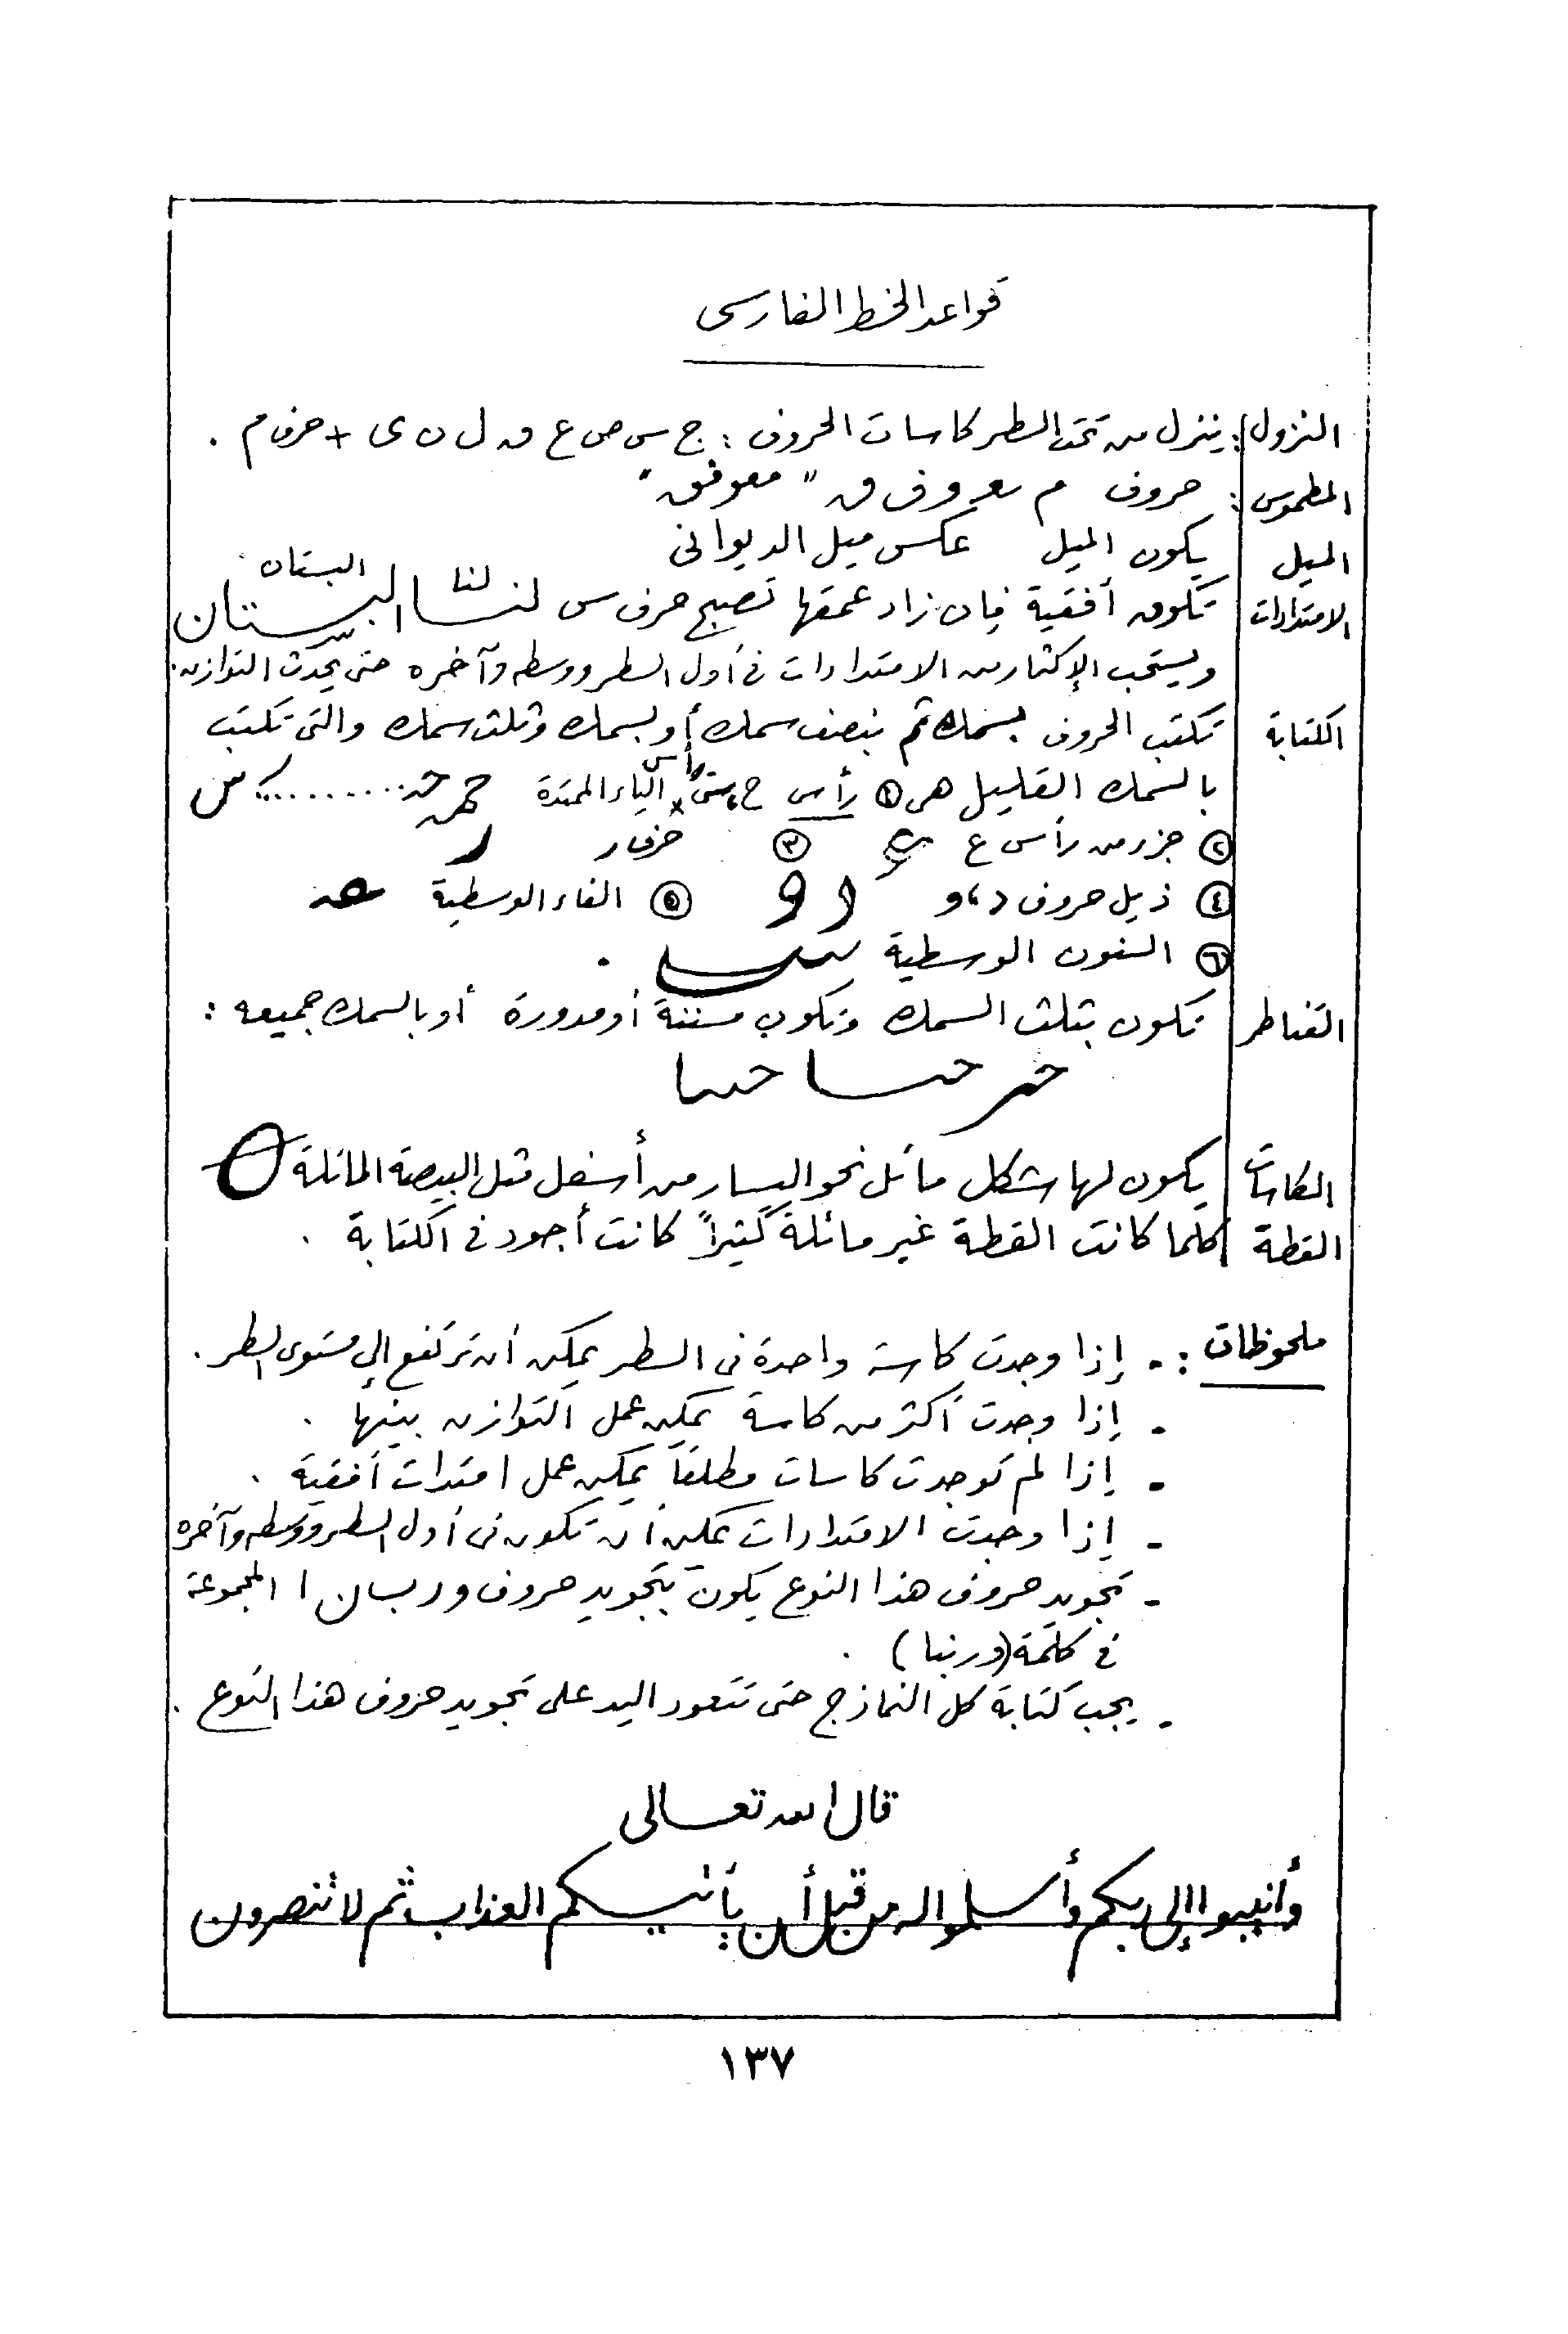 قواعد الخط الفارسى
النزول : ينزل من تحت السطر كاسات الحروف : ج س ص ع ق ل ن ى + حرف م .
المطموس : حروف م ف و ق " معوفق "
الميل يكون الميل عكس ميل الديوانى
الامتدادات تكون أفقية فإن زاد عمقها تصبح حرف س لنا لنسا البستان البستان
ويستحب الإكثار من الامتدادات فى أول السطر ووسطه وآخره حتى يحدث التوازن .
الكتابة تكتب الحروف بسمك ثم بنصف سمك أو بسمك وثلث سمك والتى تكتب
بالسمك القليل هى ١ رأس ح ، رأس الياء الممتدة
٢ جزء من رأس ع ع ٣ حرف ر ر
٤ ذيل حروف د ، و د و ٥ الفاء الوسطية
٦ السنون الوسطية .
القناطر تكون بثلث السمك وتكون مسننة أو مدورة أو بالسمك جميعه :
الكاسات يكون لها شكل مائل نحو اليسار من أسفل مثل البيضة المائلة
القطة كلما كانت القطة غير مائلة كثيراً كانت أجود فى الكتابة .
ملحوظات : - إذا وجدت كاسة واحدة فى السطر يمكن أن ترتفع إلى مستوى السطر .
- إذا وجدت أكثر من كاسة يمكن عمل التوازن بينها .
- إذا لم توجدت كاسات مطلقاً يمكن عمل امتدات أفقية .
- إذا وجدت الامتدادات يمكن أن تكون فى أول السطر ووسطه وآخره
- تجويد حروف هذا النوع يكون بتجويد حروف و ر ب ن ا المجموعة
فى كلمة ( وربنا ) .
- يجب كتابة كل النماذج حتى تتعود اليد على تجويد حروف هذا النوع .
قال الله تعالى
وأنيبوا إلى ربكم وأسلموا له من قبل أن يأتيكم العذاب ثم لا تنصرون
١٣٧